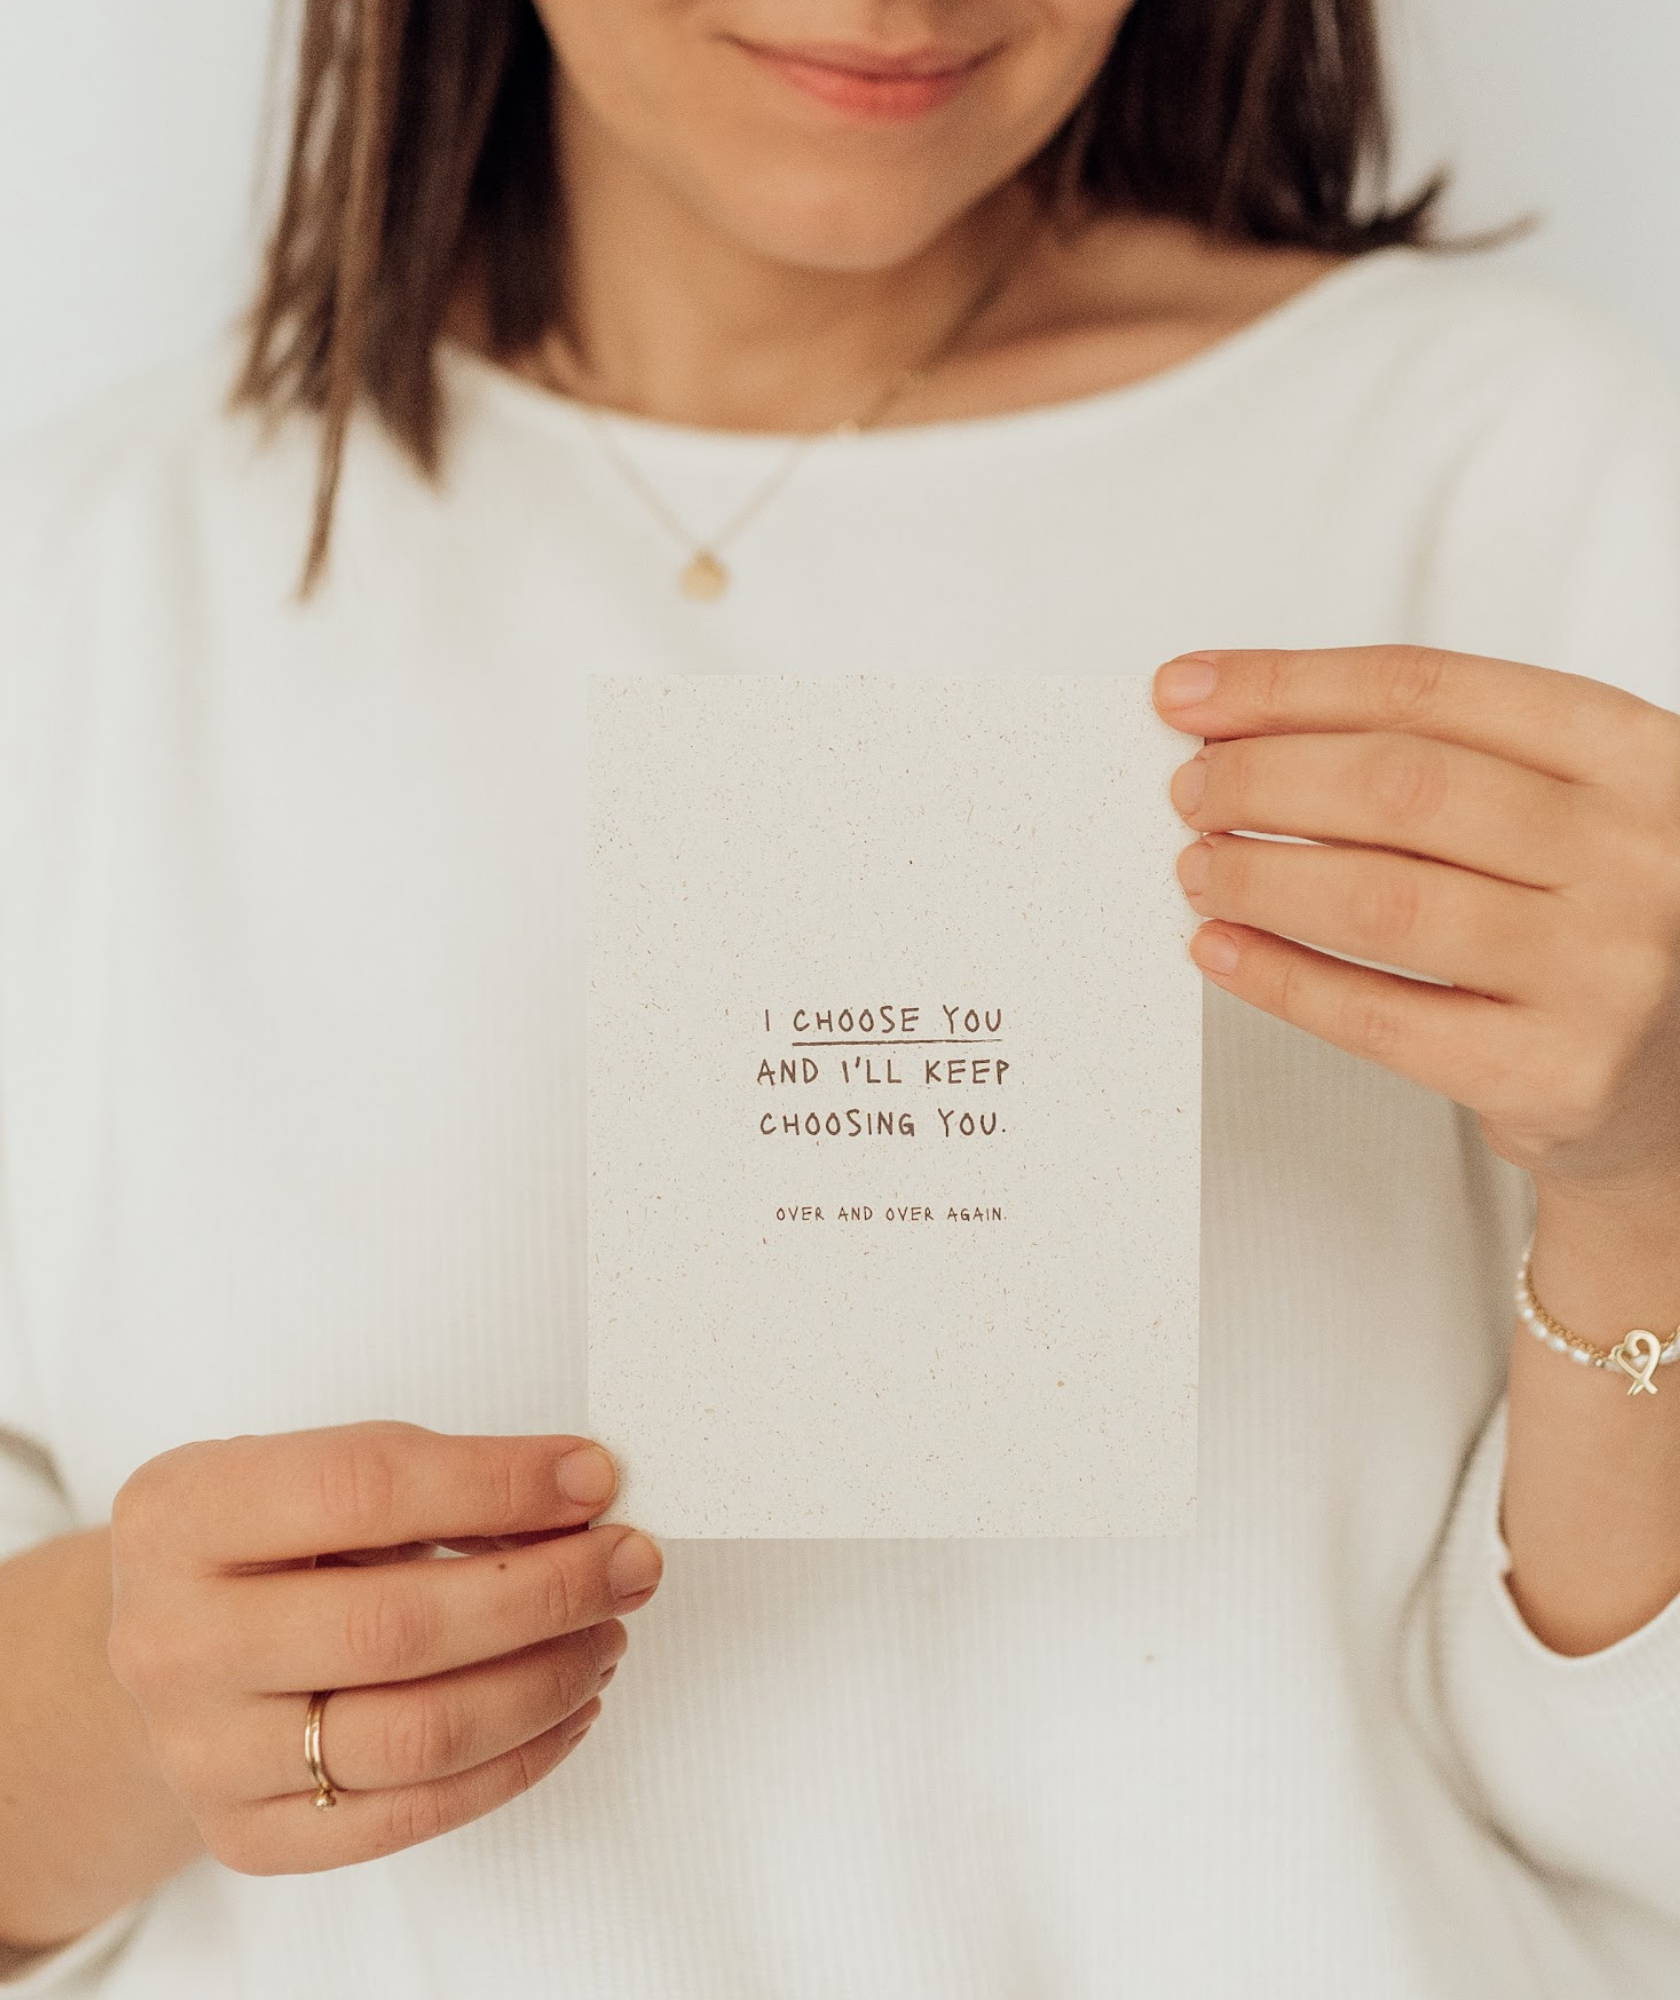 I CHOOSE YOU
AND I'LL KEEP
CHOOSING YOU.
OVER AND OVER AGAIN.